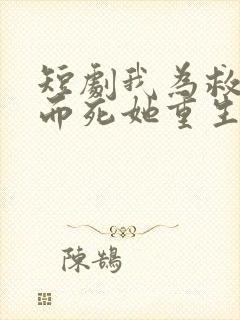 短劇我為救
而死她重生
陳鵠